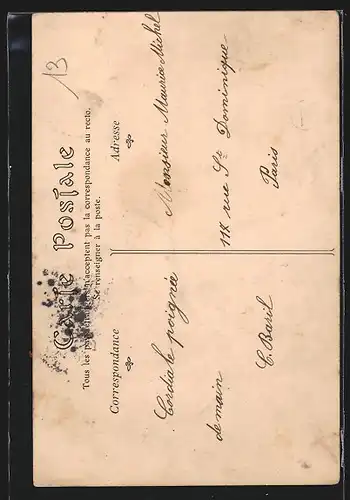 13
Carte Postale
Tous les pays étrangers n'acceptent pas la correspondance au recto.
Se renseigner à la poste.
Correspondance
Cordiale poignée
de main
C. Baril
Adresse
Monsieur Maurice Michel
118 rue St Dominique
Paris